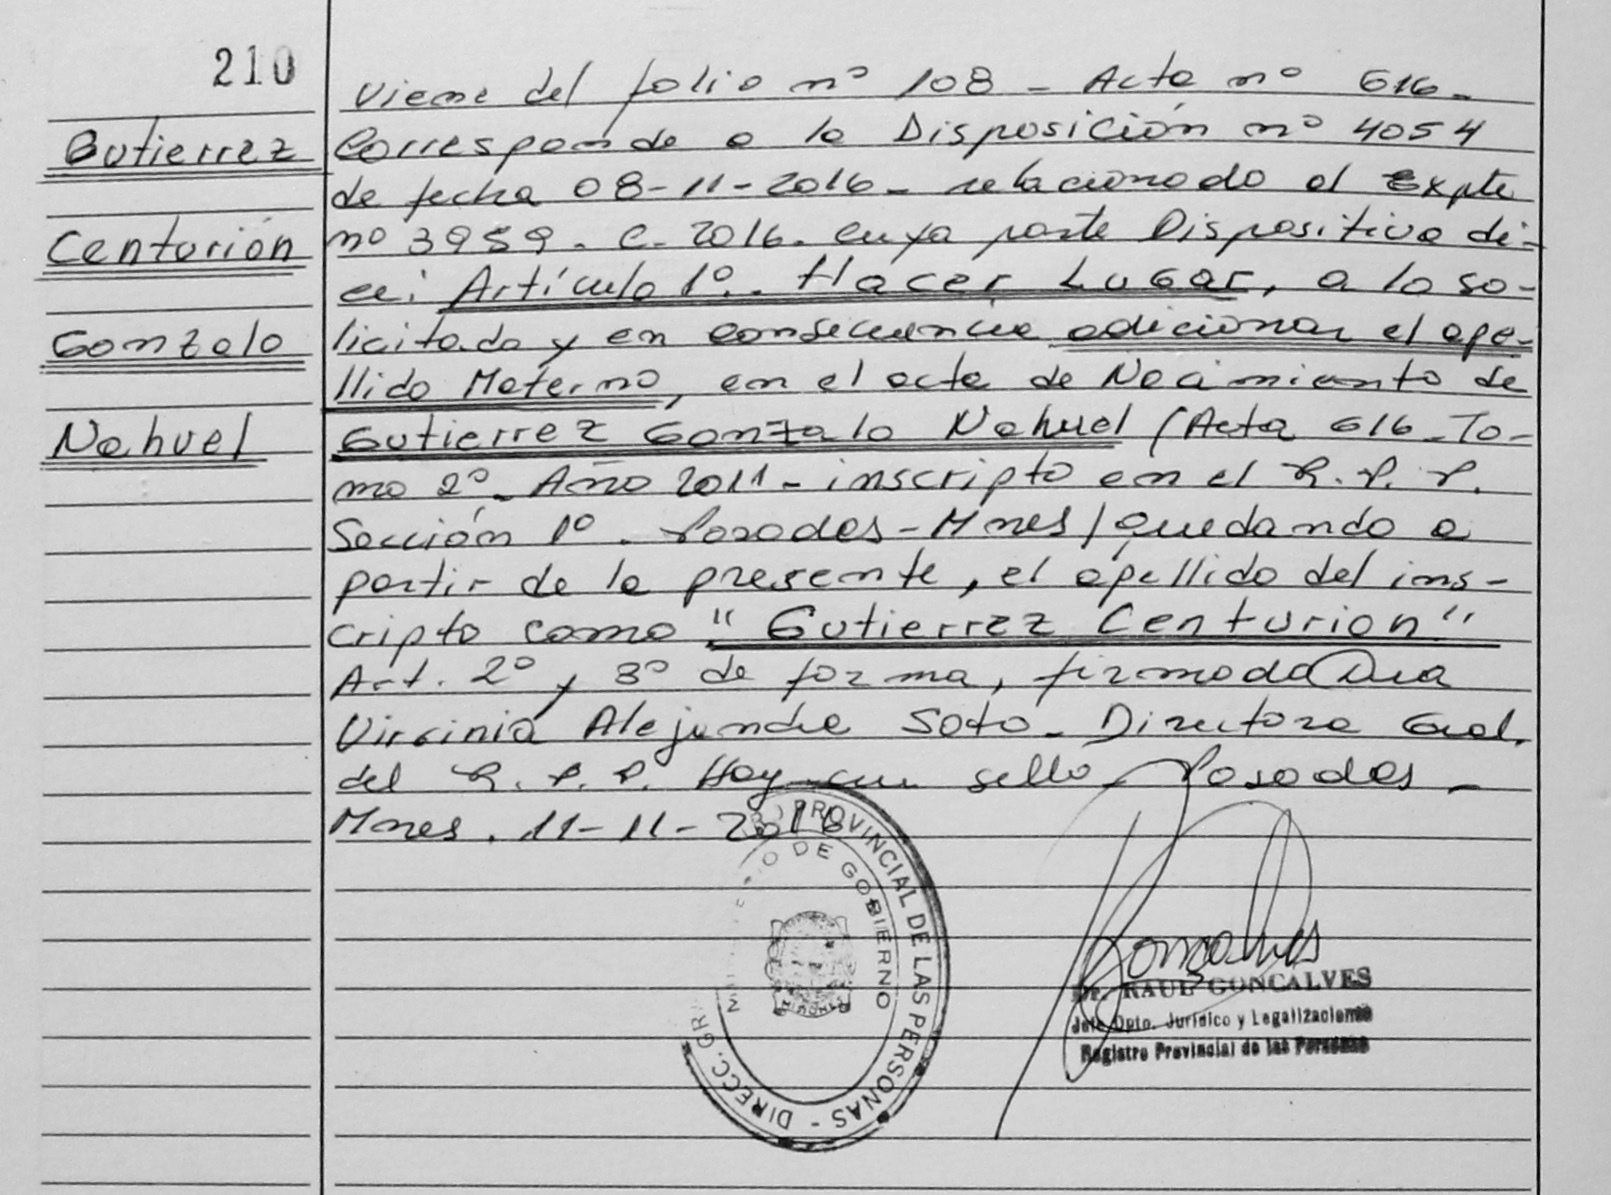 210
Gutierrez
Centurión
Gonzalo
Nahuel
Viene del folio nº 108 - Acta nº 616-
Corresponde a la Disposición nº 4054
de fecha 08-11-2016- relacionado al Expte
nº 3959. C. 2016. cuya parte Dispositiva di-
ce: Artículo 1º. Hacer Lugar, a lo so-
licitado y en consecuencia adicionar el ape-
llido Materno, en el acta de Nacimiento de
Gutierrez Gonzalo Nahuel (Acta 616-To-
mo 2º- Año 2011- inscripto en el R.P.P.
Sección 1º. Posadas-Mnes) quedando a
partir de la presente, el apellido del ins-
cripto como "Gutierrez Centurion"
Art. 2º y 3º de forma, firmada Dra
Virginia Alejandra Soto- Directora Gral.
del R.P.P. Hay un sello- Posadas-
Mnes. 11-11-2016
PROVINCIAL DE LAS PERSONAS - DIRECC. GR
DE GOBIERNO
Goncalves
Dr. RAUL GONCALVES
Jefe Dpto. Jurídico y Legalizaciones
Registro Provincial de las Personas